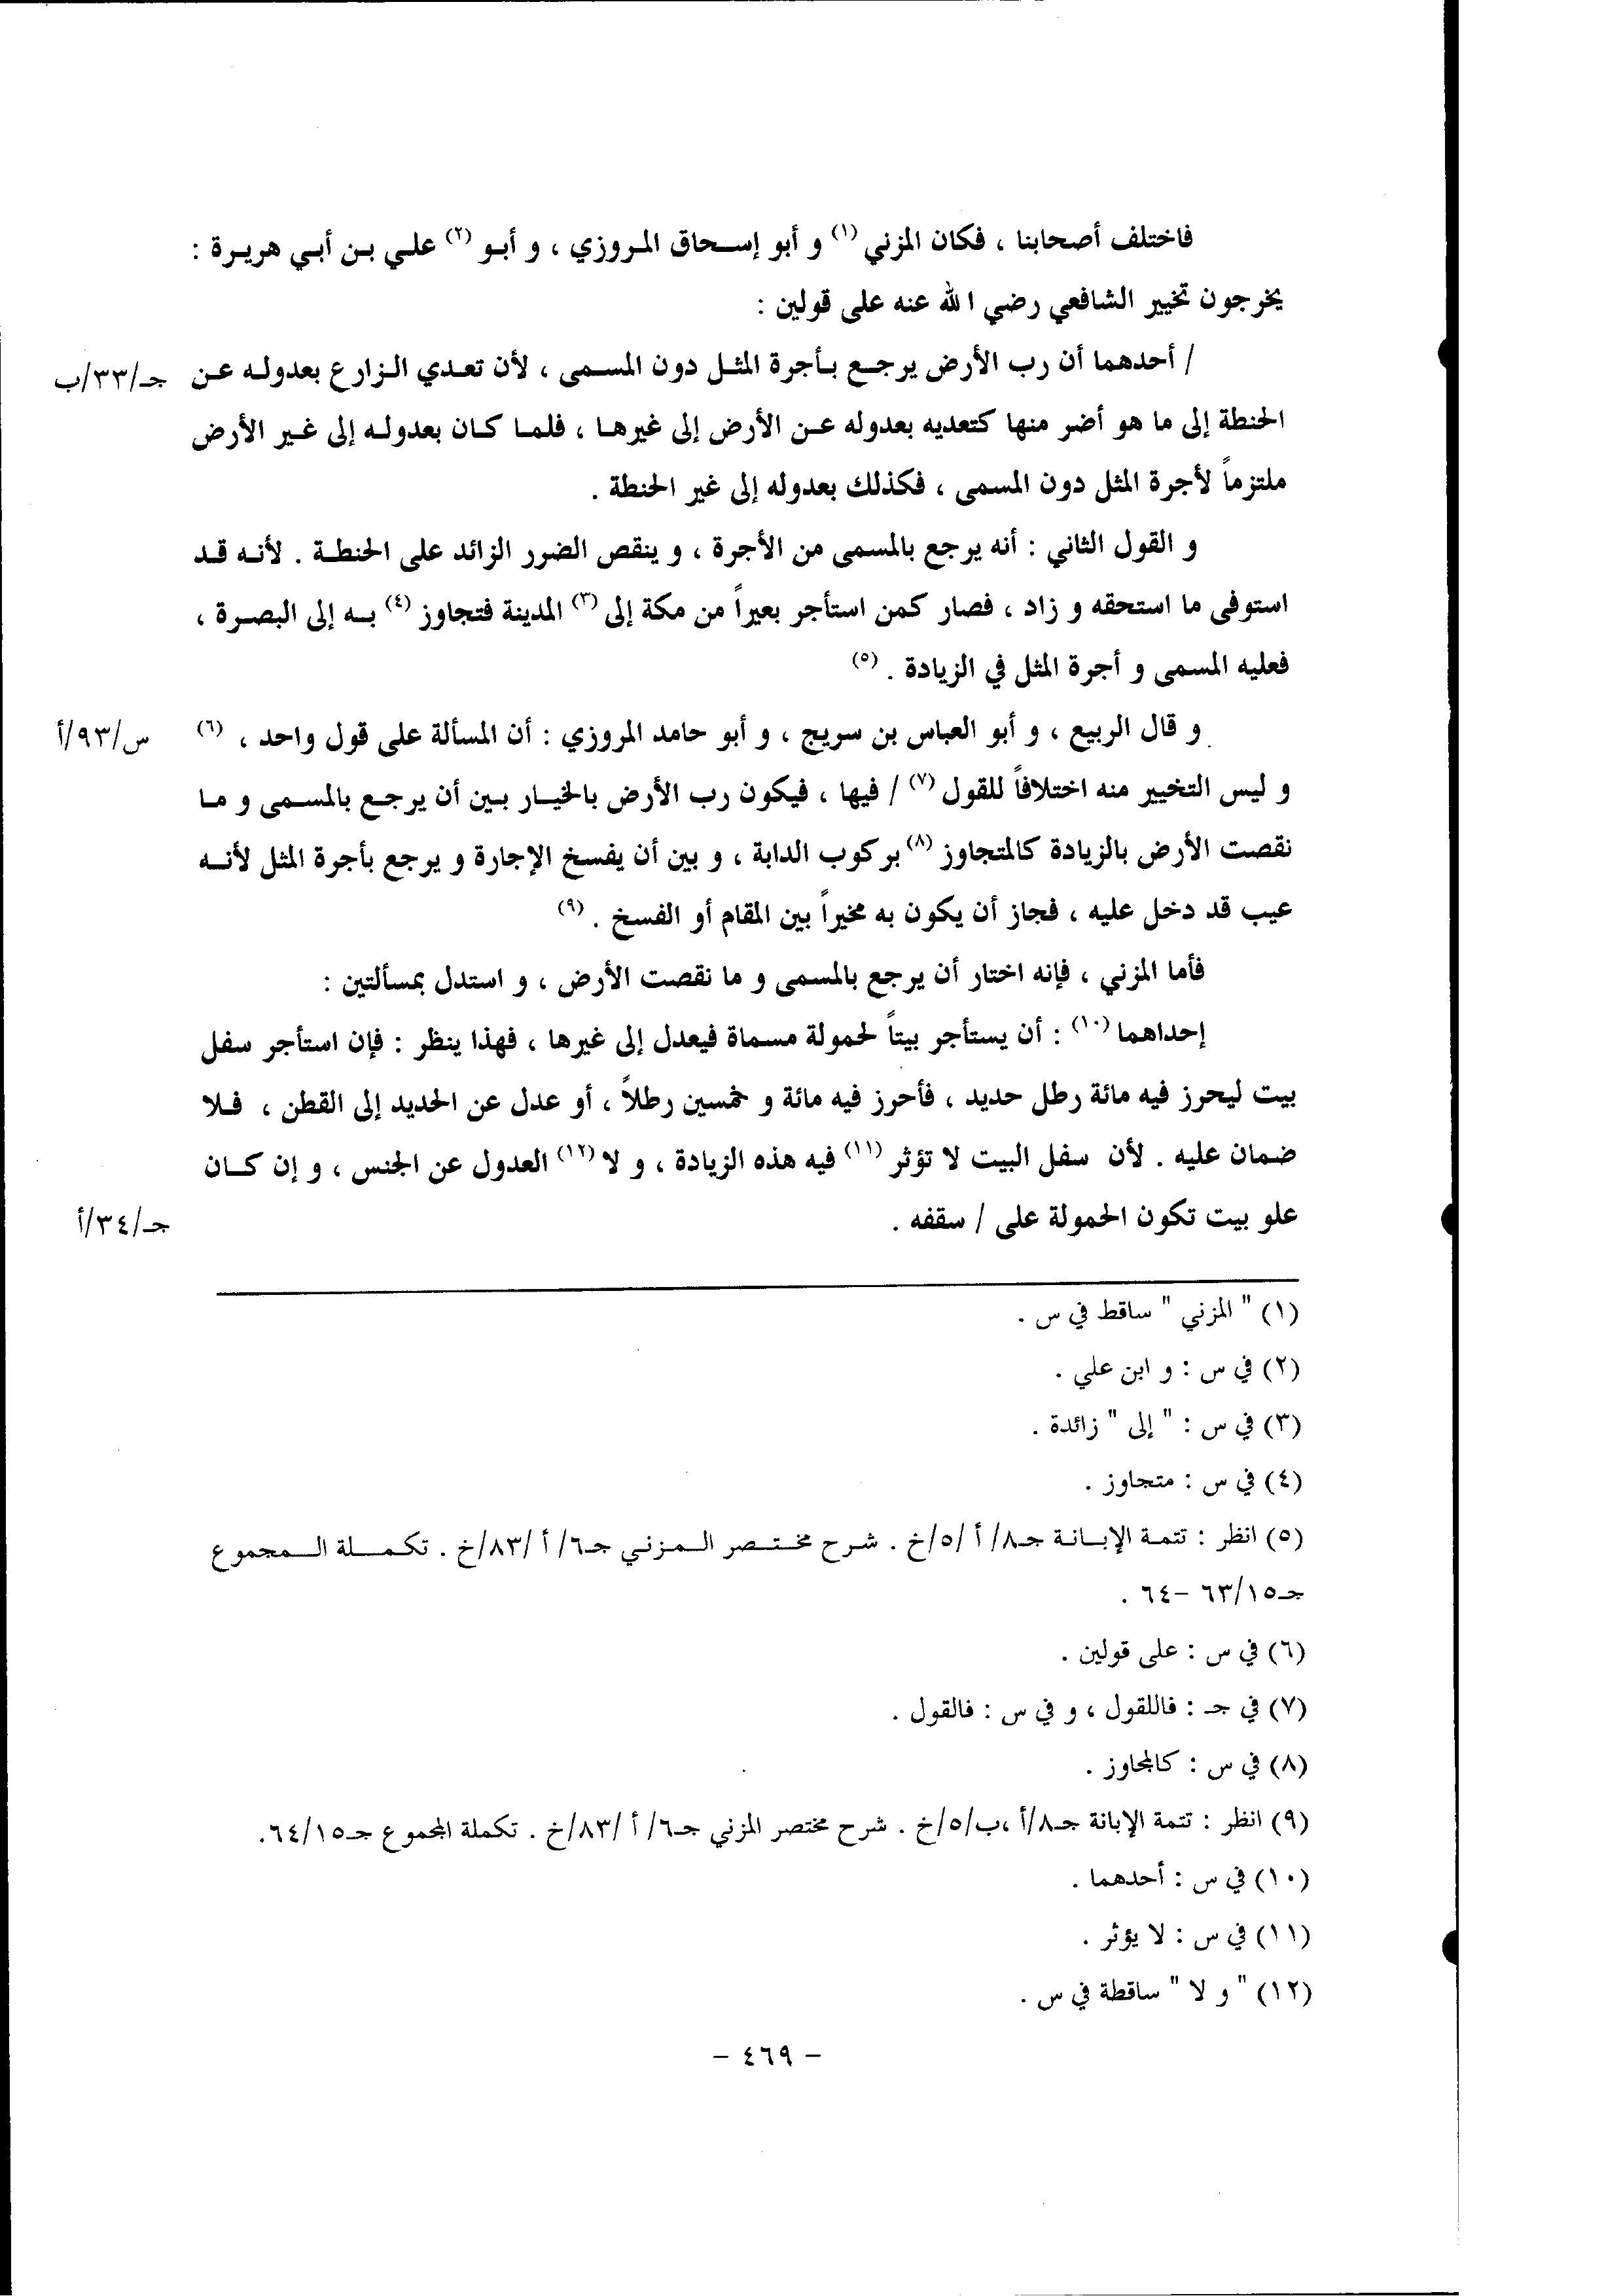 فاختلف أصحابنا ، فكان المزني (١) و أبو إسحاق المروزي ، و أبو (٢) علي بن أبي هريرة :
يخرجون تخيير الشافعي رضي الله عنه على قولين :
/ أحدهما أن رب الأرض يرجع بأجرة المثل دون المسمى ، لأن تعدي الزارع بعدوله عن جـ/٣٣/ب
الحنطة إلى ما هو أضر منها كتعديه بعدوله عن الأرض إلى غيرها ، فلما كان بعدوله إلى غير الأرض
ملتزماً لأجرة المثل دون المسمى ، فكذلك بعدوله إلى غير الحنطة .
و القول الثاني : أنه يرجع بالمسمى من الأجرة ، و ينقص الضرر الزائد على الحنطة . لأنه قد
استوفى ما استحقه و زاد ، فصار كمن استأجر بعيراً من مكة إلى (٣) المدينة فتجاوز (٤) به إلى البصرة ،
فعليه المسمى و أجرة المثل في الزيادة . (٥)
و قال الربيع ، و أبو العباس بن سريج ، و أبو حامد المروزي : أن المسألة على قول واحد ، (٦) س/٩٣/أ
و ليس التخيير منه اختلافاً للقول (٧) / فيها ، فيكون رب الأرض بالخيار بين أن يرجع بالمسمى و ما
نقصت الأرض بالزيادة كالمتجاوز (٨) بركوب الدابة ، و بين أن يفسخ الإجارة و يرجع بأجرة المثل لأنه
عيب قد دخل عليه ، فجاز أن يكون به مخيراً بين المقام أو الفسخ . (٩)
فأما المزني ، فإنه اختار أن يرجع بالمسمى و ما نقصت الأرض ، و استدل بمسألتين :
إحداهما (١٠) : أن يستأجر بيتاً لحمولة مسماة فيعدل إلى غيرها ، فهذا ينظر : فإن استأجر سفل
بيت ليحرز فيه مائة رطل حديد ، فأحرز فيه مائة و خمسين رطلاً ، أو عدل عن الحديد إلى القطن ، فلا
ضمان عليه . لأن سفل البيت لا تؤثر (١١) فيه هذه الزيادة ، و لا (١٢) العدول عن الجنس ، و إن كان
علو بيت تكون الحمولة على / سقفه . جـ/٣٤/أ
(١) " المزني " ساقط في س .
(٢) في س : و ابن علي .
(٣) في س : " إلى " زائدة .
(٤) في س : متجاوز .
(٥) انظر : تتمة الإبانة جـ٨/ أ /٥/خ . شرح مختصر المزني جـ٦/ أ /٨٣/خ . تكملة المجموع
جـ٦٣/١٥ -٦٤ .
(٦) في س : على قولين .
(٧) في جـ : فاللقول ، و في س : فالقول .
(٨) في س : كالمجاوز .
(٩) انظر : تتمة الإبانة جـ٨/أ ،ب/٥/خ . شرح مختصر المزني جـ٦/ أ /٨٣/خ . تكملة المجموع جـ٦٤/١٥.
(١٠) في س : أحدهما .
(١١) في س : لا يؤثر .
(١٢) " و لا " ساقطة في س .
- ٤٦٩ -